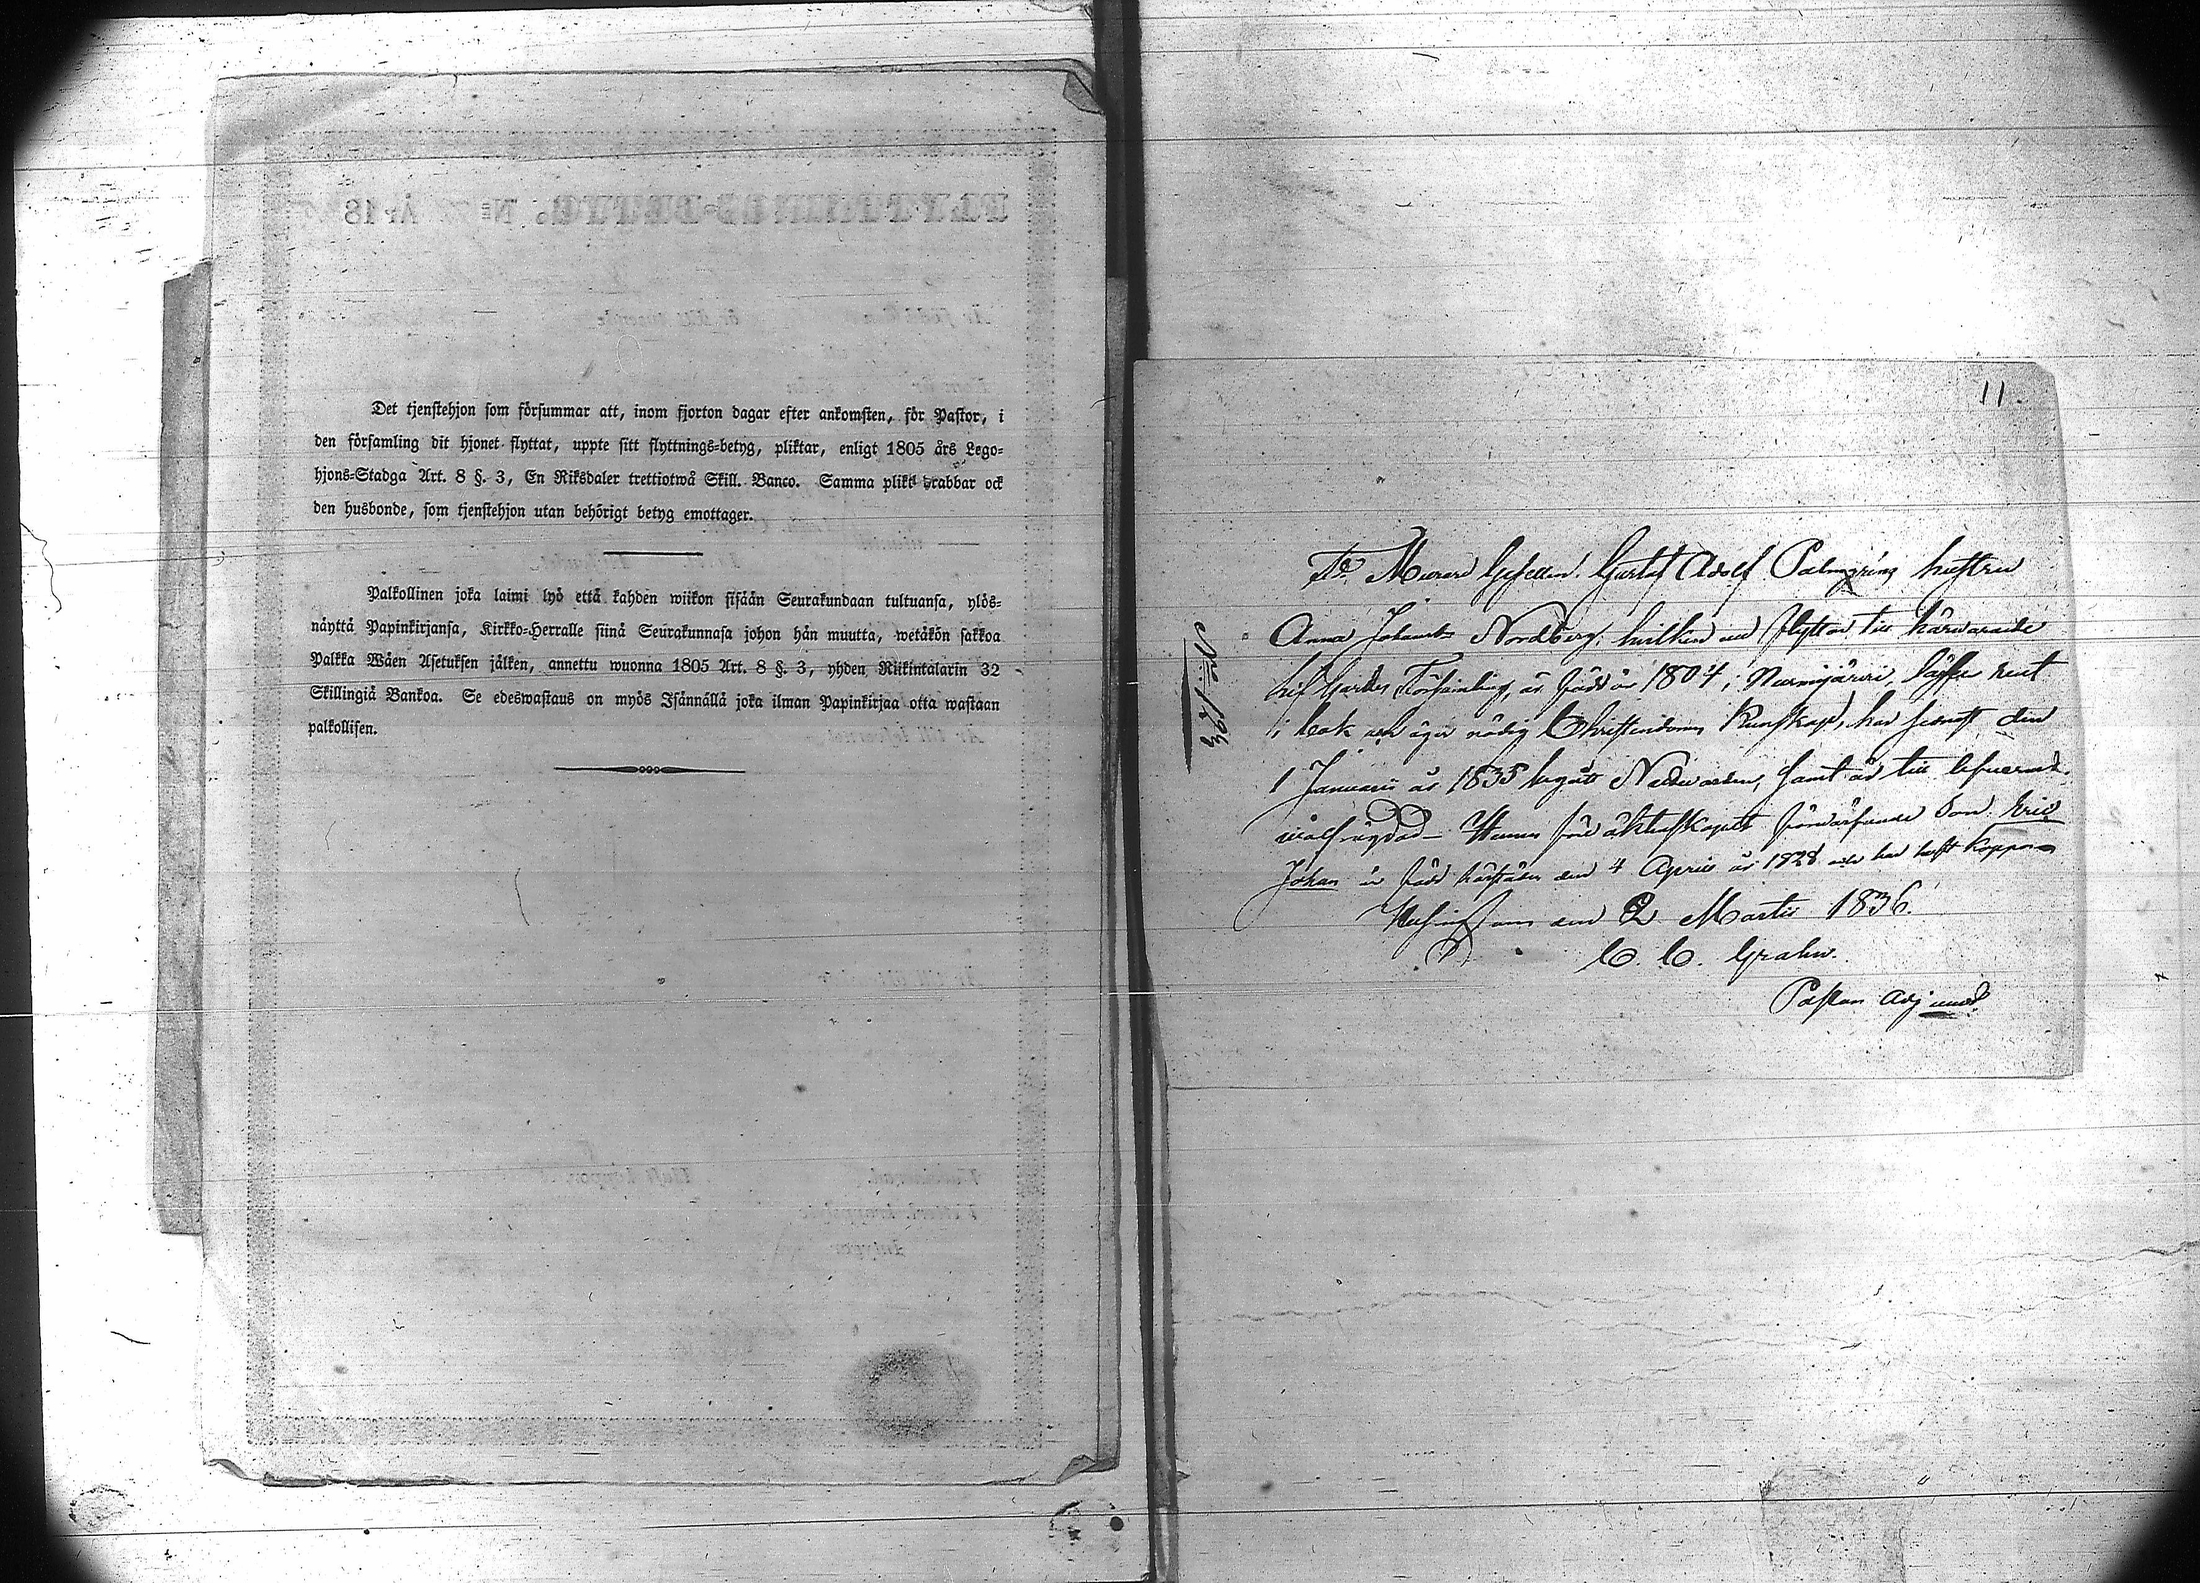 Det tjenstehjon som försummar att, inom fjorton dagar efter ankomsten, för Pastor, i
den församling dit hjonet flyttat, uppte sitt flyttnings=betyg, pliktar, enligt 1805 års Lego=
hjons=Stadga Art. 8 §. 3, En Riksdaler trettiotwå Skill. Banco. Samma plikt drabbar ock
den husbonde, som tjenstehjon utan behörigt betyg emottager.
Palkollinen joka laimi lyö että kahden wiikon sisään Seurakundaan tultuansa, ylös=
näyttä Papinkirjansa, Kirkko=Herralle siinä Seurakunnasa johon hän muutta, wetäkön sakkoa
Palkka Wäen Asetuksen jälken, annettu wuonna 1805 Art. 8 §. 3, yhden Riikintalarin 32
Skillingiä Bankoa. Se edeswastaus on myös Isännällä joka ilman Papinkirjaa otta wastaan
palkollisen.
11.
Murare Gesellen Gustaf Adolf Palmgrens hustru
Anna Johanna Nordberg, hvilken nu flyttar till härvarande
Gardes Församling, är född år 1804 i Nurmijärvi, läser rent
i bok och äger nödig Christendoms Kunskap, har senast den
1 Januarii år 1835 begått Nattvarden, samt är till lefvernet
oförvägad – Hennes före äktenskapet förvärfvade Son Eric
Johan är född härstädes den 4 Aprill år 1828 och har haft koppor
Helsingfors den 2 Martii 1836.
C. C. Grahn.
Pastors Adjunct